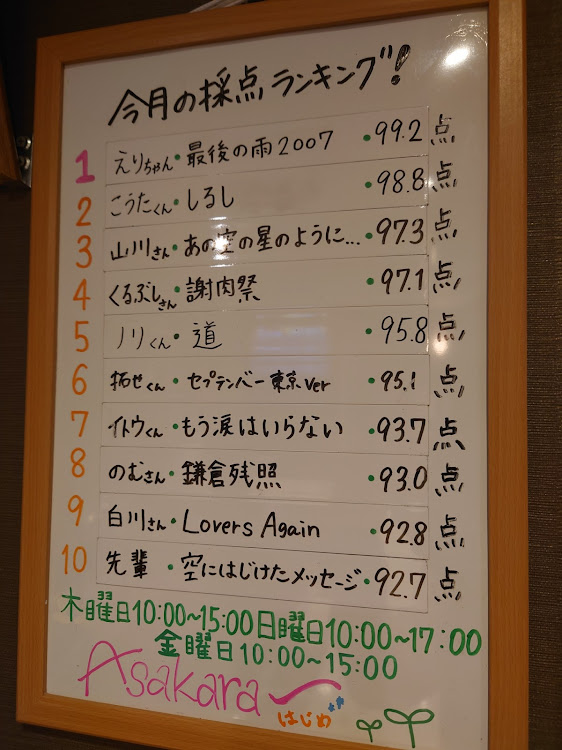 今月の採点ランキング!
1 えりちゃん・最後の雨2007 ・99.2点
2 こうたくん・しるし ・98.8点
3 山川さん・あの空の星のように... ・97.3点
4 くるぶしさん・謝肉祭 ・97.1点
5 ノリくん・道 ・95.8点
6 拓せくん・セプテンバー東京ver ・95.1点
7 イトウくん・もう涙はいらない ・93.7点
8 のむさん・鎌倉残照 ・93.0点
9 白川さん・Lovers Again ・92.8点
10 先輩・空にはじけたメッセージ・92.7点
木曜日10:00~15:00日曜日10:00~17:00
金曜日10:00~15:00
Asakara
はじめ